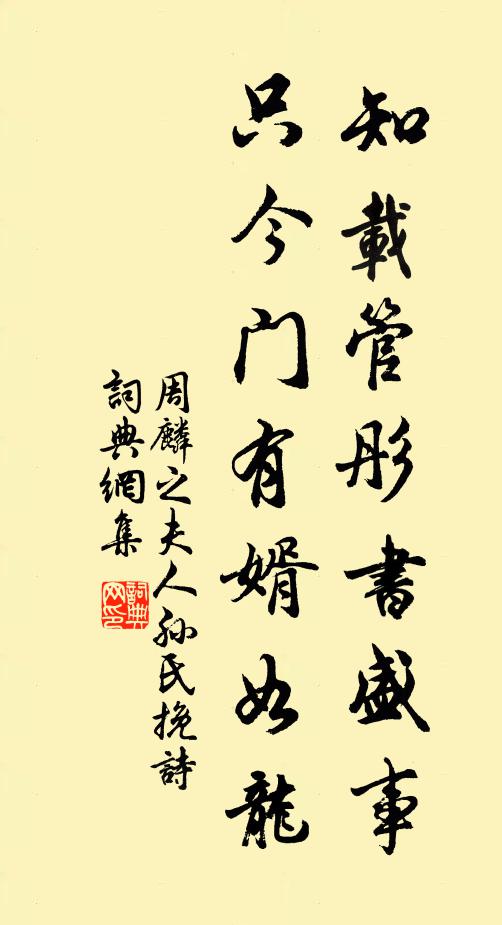 知載管彤書盛事
只今門有婿如龍
周麟之夫人孫氏挽詩
詞典網集
詞典网印